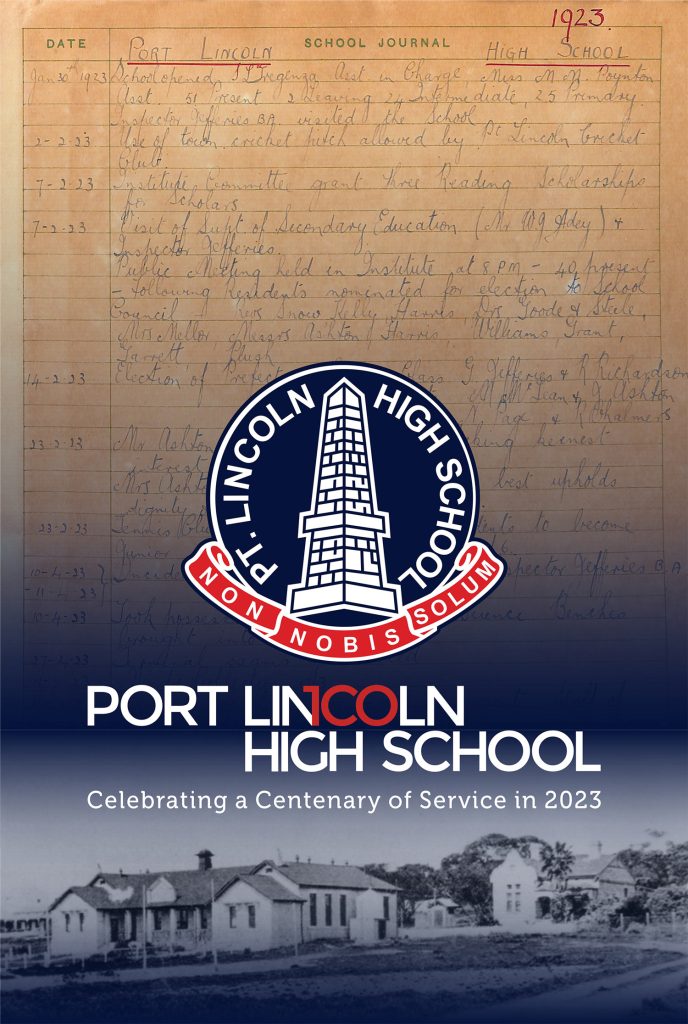 1923.
DATE PORT LINCOLN SCHOOL JOURNAL HIGH SCHOOL
Jan 30th 1923 School opened, Asst. in Charge Miss M. R. Poynton
Asst. 51 Present 2 Leaving 24 Intermediate, 25 Primary.
Inspector Jefferies B.A. visited the School
2-2-23 Use of town cricket pitch allowed by Pt Lincoln Cricket
Club.
7-2-23 Institute Committee grant three Reading Scholarships
for Scholars
7-2-23 Visit of Supt. of Secondary Education (Mr W.G. Adey) &
Inspector Jefferies.
Public Meeting held in Institute at 8 P.M. - 40 present
- Following Residents nominated for election to School
Council Revs Snow Kelly, Harris, Drs Goode & Steele,
Mrs Mellor, Messrs Ashton, Harris, Williams, Grant,
Garrett,
14-2-23 Election of Prefect Class G Jefferies & R Richardson
M McLean & J. Ashton
N Page & R Chalmers
23-2-23 Mr Ashton keenest
interest
Mrs Ashton best upholds
dignity
23-2-23 Tennis to become
Junior
10-4-23 Inspector Jefferies B.A
11-4-23
10-4-23 Took Benches
brought
27-4-23
PT. LINCOLN HIGH SCHOOL
NON NOBIS SOLUM
PORT LIN1COLN
HIGH SCHOOL
Celebrating a Centenary of Service in 2023